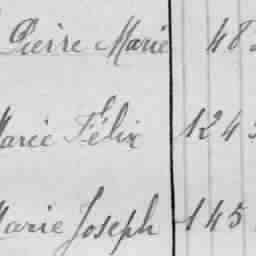 Pierre Marie 48
Marie Félix 124
Marie Joseph 145